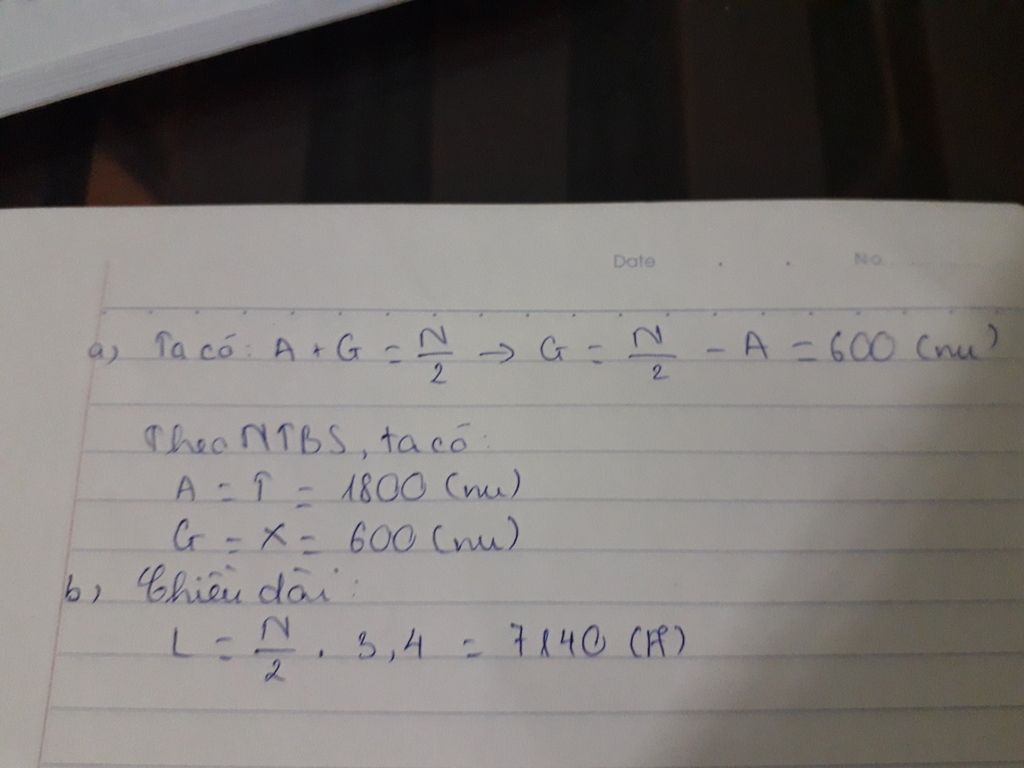 Date . . No.
a) Ta có: A + G = N/2 → G = N/2 - A = 600 (nu)
Theo NTBS, ta có:
A = T = 1800 (nu)
G = X = 600 (nu)
b) Chiều dài:
L = N/2 . 3,4 = 7140 (Å)